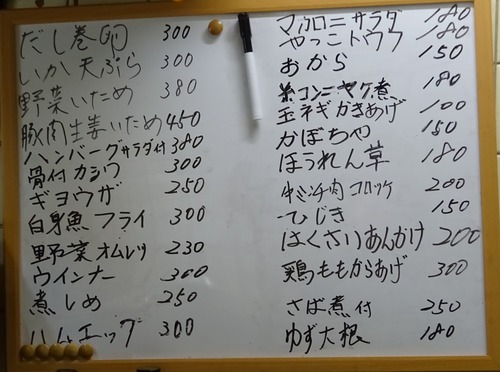 だし巻卵 300
いか天ぷら 300
野菜いため 380
豚肉生姜いため 450
ハンバーグサラダ付 380
骨付カシワ 300
ギヨウザ 250
白身魚フライ 300
野菜オムレツ 230
ウインナー 300
煮しめ 250
ハムエッグ 300
マカロニサラダ 180
やっこトウフ 180
おから 150
糸コンニャク煮 180
玉ネギかきあげ 100
かぼちゃ 150
ほうれん草 180
牛ミンチ肉コロッケ 200
ひじき 150
はくさいあんかけ 200
鶏ももからあげ 300
さば煮付 250
ゆず大根 180